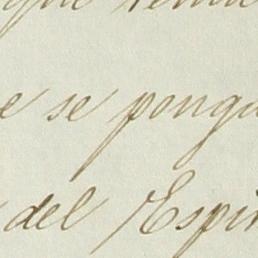 e se pongu
del Espir